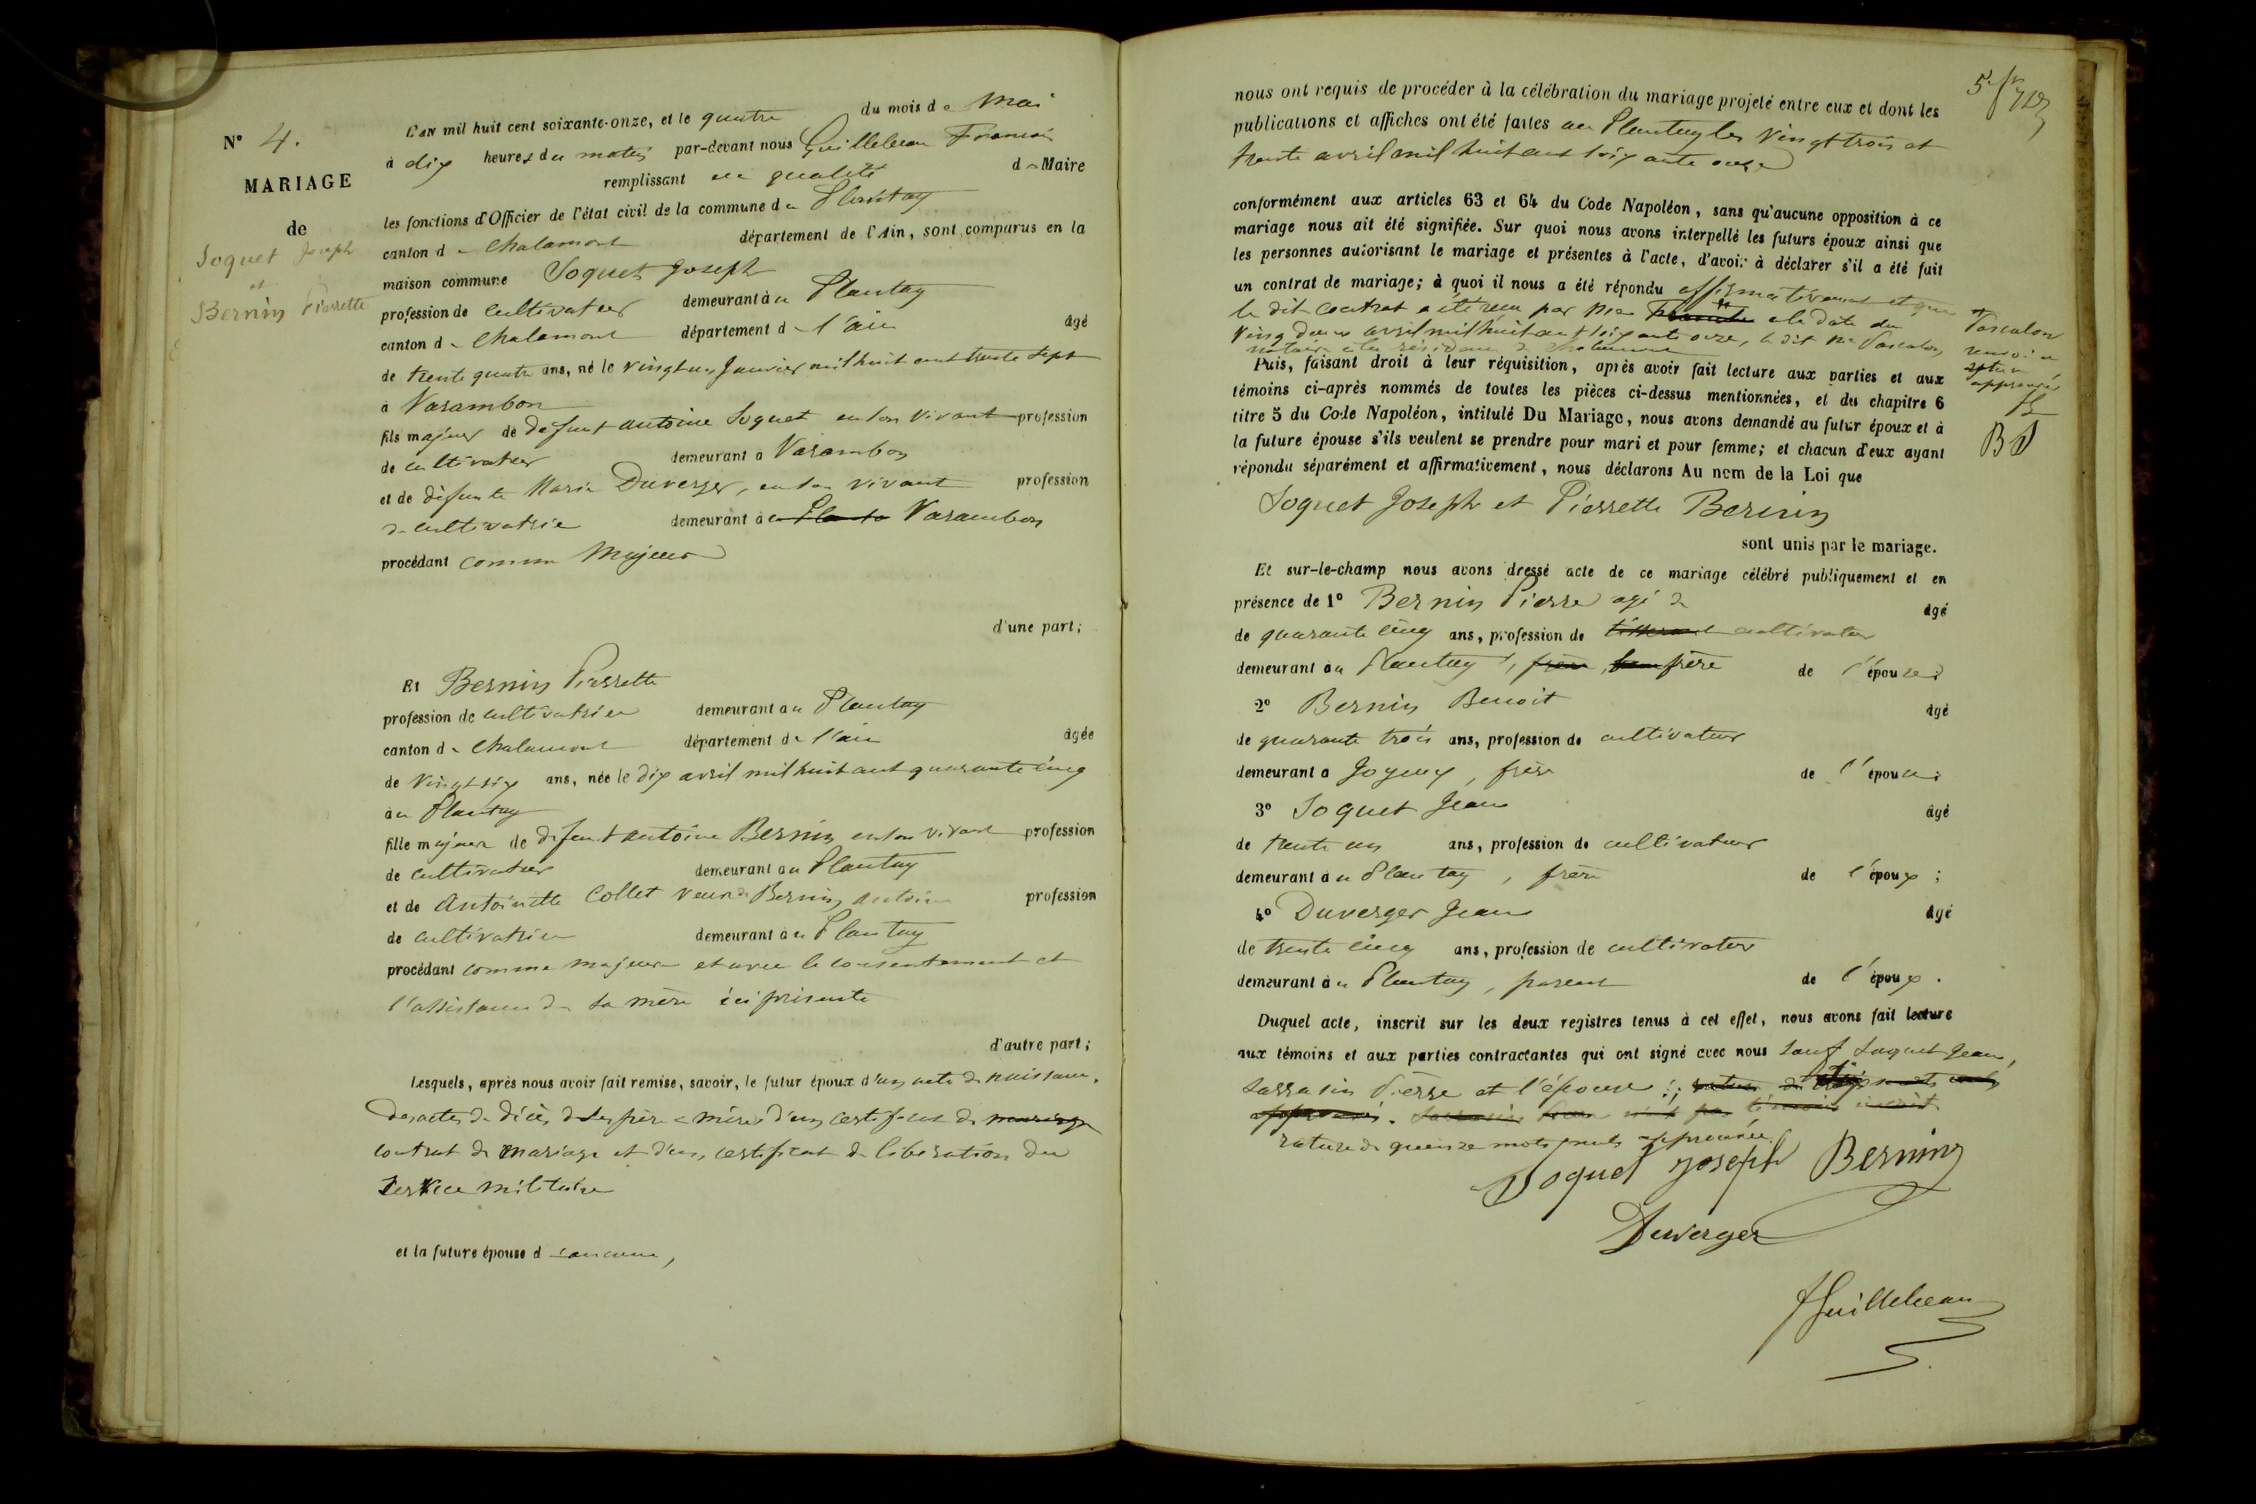 N° 4.
MARIAGE
de
Soquet Joseph
et
Bernin Pierrette
L'an mil huit cent soixante-onze, et le quatre du mois de Mai
à dix heures du matin par-devant nous Guillebeau François
remplissant en qualité de Maire
les fonctions d'Officier de l'état civil de la commune du Plantay
canton de Chalamont département de l'Ain, sont comparus en la
maison commune Soquet Joseph
profession de cultivateur demeurant au Plantay
canton de Chalamont département de l'ain âgé
de trente quatre ans, né le vingt un Janvier mil huit cent trente sept
à Varambon
fils majeur de défunt antoine Soquet en son vivant profession
de cultivateur demeurant à Varambon
et de défunte Marie Duverger, en son vivant profession
de cultivatrice demeurant à Varambon
procédant comme Majeur
d'une part;
Et Bernin Pierrette
profession de cultivatrice demeurant au Plantay
canton de Chalamont département de l'ain âgée
de vingt six ans, née le dix avril mil huit cent quarante cinq
au Plantay
fille majeure de défunt antoine Bernin en son vivant profession
de cultivateur demeurant au Plantay
et de Antoinette Collet veuve de Bernin antoine profession
de cultivatrice demeurant au Plantay
procédant comme majeure et avec le consentement et
l'assistance de sa mère ici présente
d'autre part;
Lesquels, après nous avoir fait remise, savoir, le futur époux d'un acte de naissance,
des actes de décès de ses père & mère d'un certificat de mariage
contrat de mariage et d'un certificat de libération du
service militaire
et la future épouse d'aucune,
nous ont requis de procéder à la célébration du mariage projeté entre eux et dont les
publications et affiches ont été faites au Plantay les vingt trois et
trente avril mil huit cent soixante onze
conformément aux articles 63 et 64 du Code Napoléon, sans qu'aucune opposition à ce
mariage nous ait été signifiée. Sur quoi nous avons interpellé les futurs époux ainsi que
les personnes autorisant le mariage et présentes à l'acte, d'avoir à déclarer s'il a été fait
un contrat de mariage; à quoi il nous a été répondu affirmativement et que
le dit contrat a été reçu par Me à la date du
vingt deux avril mil huit cent soixante onze, le dit Me Vascalon
notaire à la résidence de Chalamont
Vascalon
renvoi
approuvé
Puis, faisant droit à leur réquisition, après avoir fait lecture aux parties et aux
témoins ci-après nommés de toutes les pièces ci-dessus mentionnées, et du chapitre 6
titre 5 du Code Napoléon, intitulé Du Mariage, nous avons demandé au futur époux et à
la future épouse s'ils veulent se prendre pour mari et pour femme; et chacun d'eux ayant
répondu séparément et affirmativement, nous déclarons Au nom de la Loi que
Soquet Joseph et Pierrette Bernin
sont unis par le mariage.
Et sur-le-champ nous avons dressé acte de ce mariage célébré publiquement et en
présence de 1° Bernin Pierre agé de âgé
de quarante cinq ans, profession de cultivateur
demeurant au Plantay, frère de l'épouse;
2° Bernin Benoit âgé
de quarante trois ans, profession de cultivateur
demeurant à Joyeux, frère de l'épouse;
3° Soquet Jean âgé
de trente un ans, profession de cultivateur
demeurant au Plantay, frère de l'époux;
4° Duverger Jean âgé
de trente cinq ans, profession de cultivateur
demeurant au Plantay, parent de l'époux.
Duquel acte, inscrit sur les deux registres tenus à cet effet, nous avons fait lecture
aux témoins et aux parties contractantes qui ont signé avec nous sauf Soquet Jean,
Sarrasin Pierre et l'épouse
rature de quinze mots nuls approuvée.
Soquet Joseph Bernin
Duverger
F Guillebeau